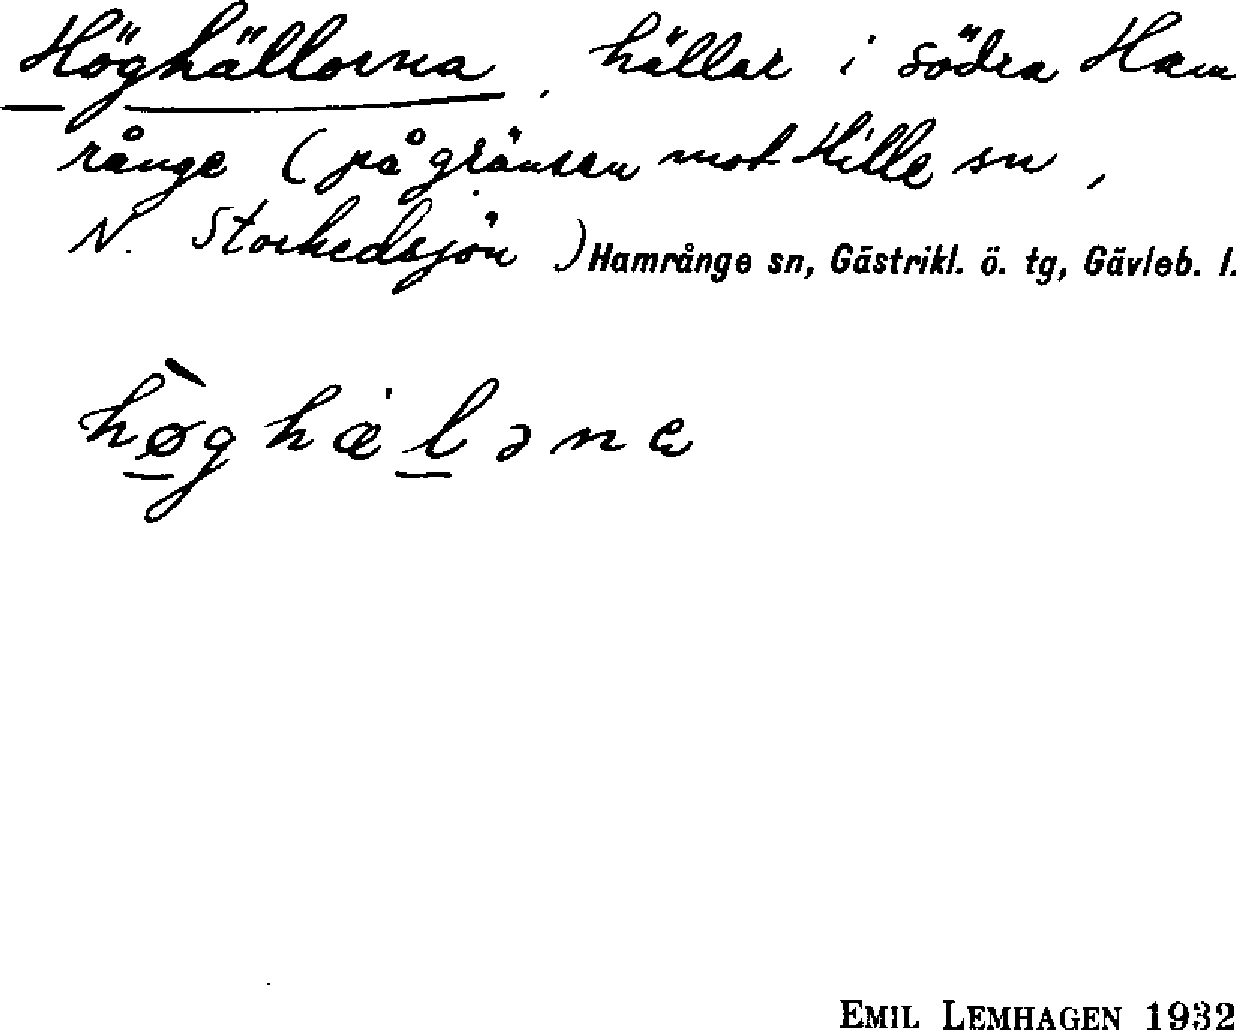 Höghällorna, hällar i södra Ham
rånge (på gränsen mot Hille sn,
N. Storhedsjön) Hamrånge sn, Gästrikl. ö. tg, Gävleb. l.
hø̱̀ghæ'ḻəna
EMIL LEMHAGEN 1932